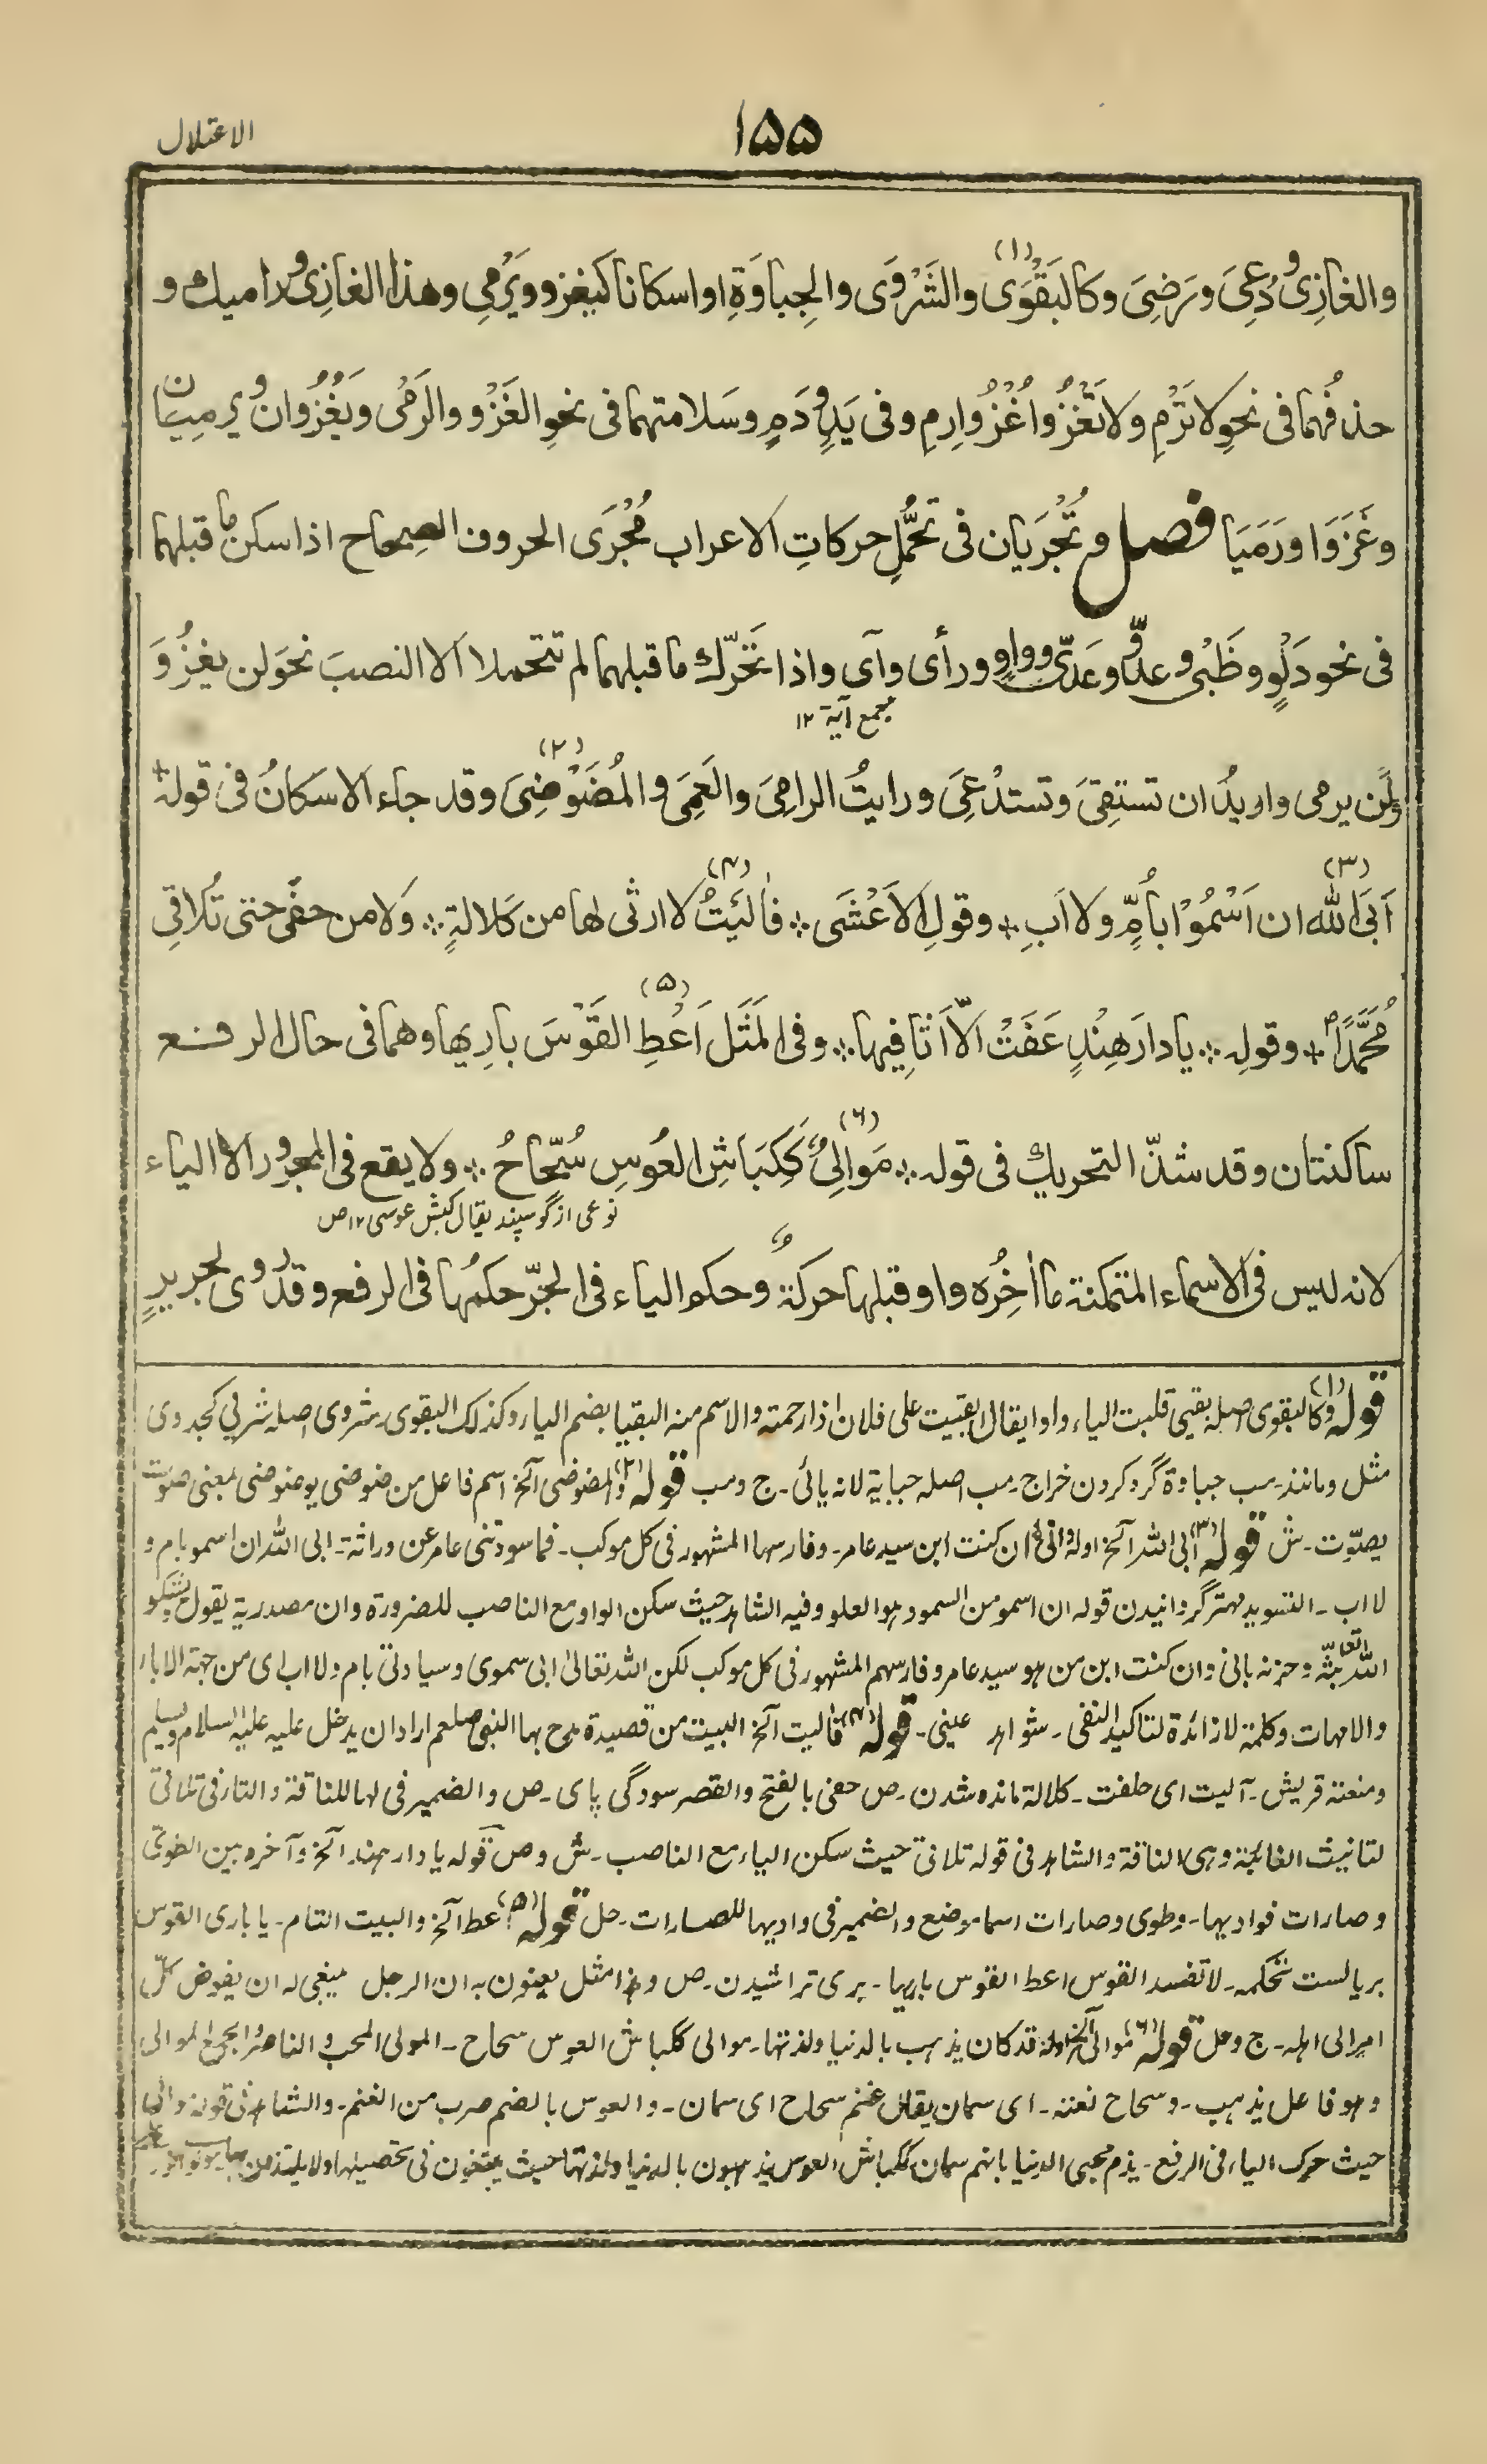 ١٥٥
الاعتلال
والغازِى ودُعِىَ ورَضِىَ وكالبَقْوَى(١) والشَرْوَى والجِباوَةِ او اسكانا كيَغزو ويَرْمِى وهذا الغازِى وراميك و
حذفُهما فى نحوِ لا تَرْمِ ولا تَغْزُ واُغْزُ وارِمِ وفى يَدٍ ودَمٍ وسَلامتهما فى نحوِ الغَزْوِ والرَمْىِ ويَغْزُوانِ ويرمِيانِ
وغَزَوَا ورَمَيَا فصل وتُجْرَيَانِ فى تحمُّلِ حركاتِ الاعراب مُجْرَى الحروف الصِحاح اذا سكن ما قبلهما
فى نحو دَلْوٍ وظَبْىٍ وعدُوٍّ وعَدِىٍّ وواوٍ ورأى وآى واذا تَحَرّك ما قبلهما لم تتحملا الا النصبَ نحوَ لن يغزُوَ
جمع آية ١٢
ولَن يرمى واريدُ ان تستقِىَ وتستدْعِىَ ورايتُ الرامِىَ والعَمِىَ والمُضَوْضِىَ(٢) وقد جاء الاسكانُ فى قوله
اَبَى الله(٣) ان اَسْمُوْا بأُمٍّ ولا اَبِ ؞ وقولِ الاَعْشَى ؞ فاٰلَيْتُ(٤) لا ارثى لها من كَلالةٍ ؞ وَلا من حفًى حتى تُلاقِى
مُحَمَّدًا ؞ وقولِه ؞ يا دارَ هِنْدٍ عَفَتْ الّا اَثافِيها ؞ وفى المَثَل اَعْطِ(٥) القَوْسَ بارِيها وهما فى حال الرفع
ساكنتان وقد شذّ التحريك فى قوله ؞ مَوالِىٌ(٦) كَكِبَاشِ العُوسِ سُحَّاحُ ؞ ولا يقع فى المجرور الا الياء
نوعى از گوسپند يقال كبش عوسى ١٢ ص
لانه ليس فى الاسماء المتمكنة ما اٰخِرُه واو وقبلها حركة وحكم الياء فى الجرّ حكمُها فى الرفع وقد رُوى لجريرٍ
قوله(١) وكالبقوى اصله بقيى قلبت الياء واوا يقال ابقيت على فلان اذا رحمته والاسم منه البقيا بضم الياء وكذلك البقوى شروى اصله شريى كجدوى
مثل ومانند مب جباوة گرد كردن خراج ـ مب اصله جباية لانه يائى ـ ج ومب قوله(٢) والمضوضى آلخ اسم فاعل من ضوضى يوضوضى بمعنى صوّت
يصوّت ـ ش قوله(٣) ابى الله آلخ اوله وانى وان كنت ابن سيد عامر ـ وفارسها المشهور فى كل موكب ـ فما سودتنى عامر عن وراثة ـ ابى الله ان اسمو بام و
لا اب ـ التسويد مهتر گردانيدن قوله ان اسمو من السمو وهو العلو وفيه الشاهد حيث سكن الواو مع الناصب للضرورة وان مصدرية يقول يشكو
الله تعالى بثّه وحزنه بانى وان كنت ابن من هو سيد عامر وفارسهم المشهور فى كل موكب لكن الله تعالى ابى سموى وسيادتى بام ولا اب اى من جهة الاباء
والامهات وكلمة لا زائدة لتاكيد النفى ـ شواهد عينى ـ قوله(٤) فاليت آلخ البيت من قصيدة مدح بها النبى صلعم اراد ان يدخل عليه عليه السلام ويسلم
ومنعته قريش ـ آليت اى حلفت ـ كلالة مانده شدن ـ ص حفى بالفتح والقصر سودگى پاى ـ ص والضمير فى لها للناقة والتاء فى تلاقى
لتانيث الغائبة وهى الناقة والشاهد فى قوله تلاقى حيث سكن الياء مع الناصب ـ ش وص قوله يا دار هند آلخ وآخره بين الطوى
وصارات فواديها ـ وطوى وصارات اسما موضع والضمير فى واديها للصارات ـ حل قوله(٥) اعط آلخ والبيت التام ـ يا بارى القوس
بريا لست تحكمه ـ لا تفسد القوس اعط القوس باريها ـ برى تراشيدن ـ ص وهذا مثل يعنون به ان الرجل ينبغى له ان يفوض كل
امر الى اهله ـ ج وحل قوله(٦) موالى آلخ اوله قد كان يذهب بالدنيا ولذتها ـ موالى ككباش العوس سحاح ـ المولى المحب والناصر والجمع الموالى
وهو فاعل يذهب ـ وسحاح نعته ـ اى سمان يقال غنم سحاح اى سمان ـ والعوس بالضم ضرب من الغنم ـ والشاهد فى قوله موالى
حيث حرك الياء فى الرفع ـ يذم محبى الدنيا بانهم سمان ككباش العوس يذهبون بالدنيا ولذتها حيث يتعبون فى تحصيلها ولا يلتذ من